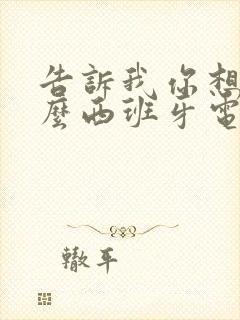 告訴我你想
麼西班牙電
轍平